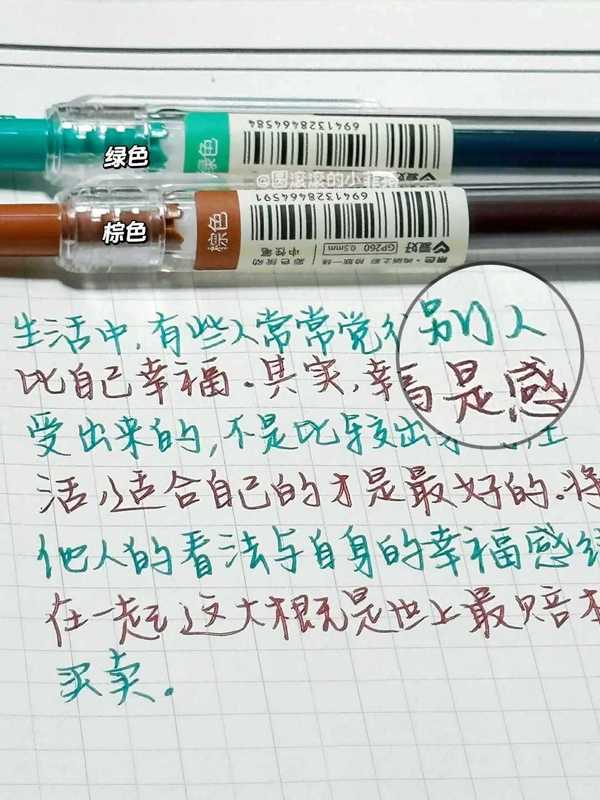 绿色
绿色
6941328464584
爱好
@圆滚滚的小菲猪
棕色
棕色
6941328464591
中性笔
GP260 0.5mm
爱好
生活中,有些人常常觉得别人
比自己幸福.其实,幸福是感
受出来的,不是比较出来
活,适合自己的才是最好的.将
他人的看法与自身的幸福感
在一起 这大概是世上最赔本
买卖.